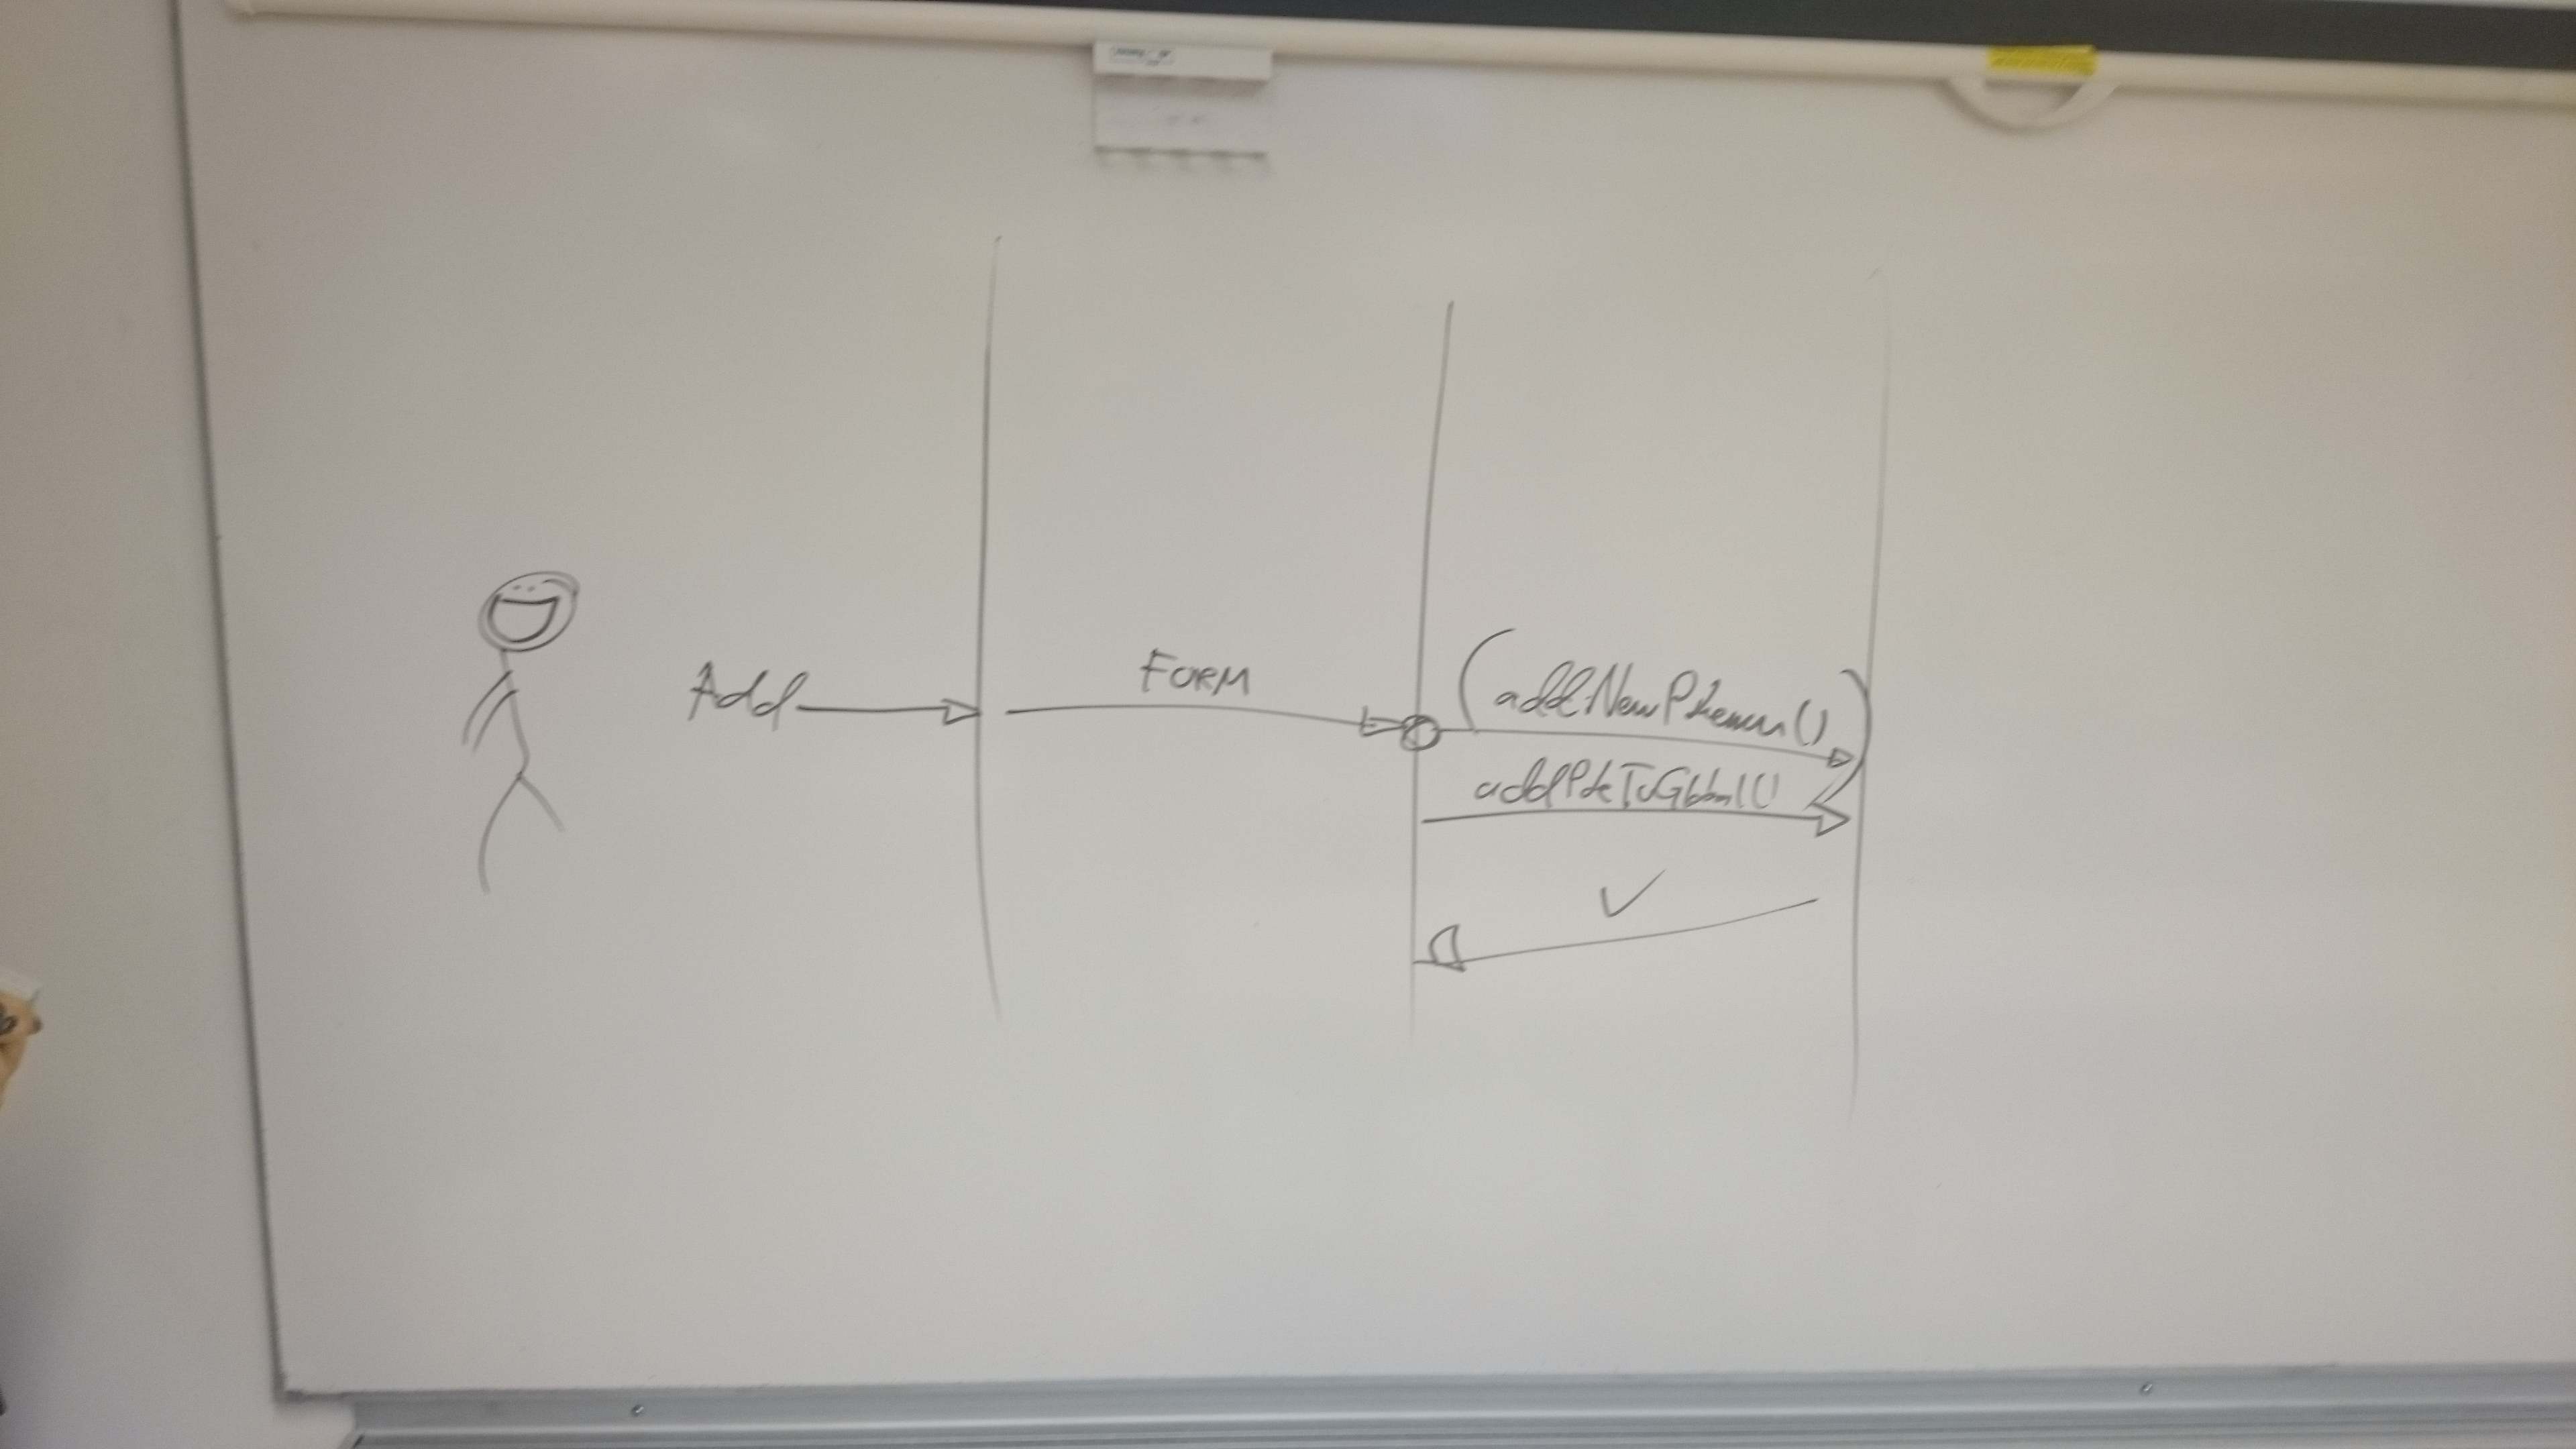 Add
FORM
(addNewPkemon()
addPkeToGlobal()